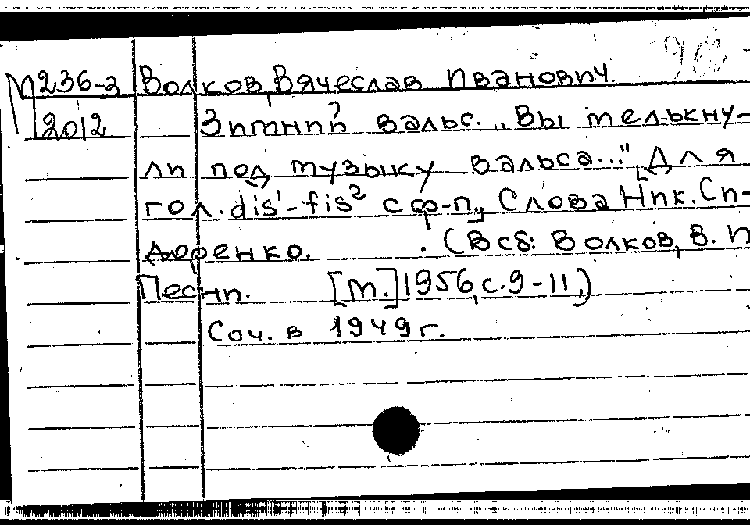 М236-3 Волков, Вячеслав Иванович.
2012 Зимний вальс. „Вы мелькну-
ли под музыку вальса..." Для
гол. dis¹-fis² с ф-п., Слова Ник. Си-
доренко. (В сб: Волков, В. И
Песни. [М.] 1956, с. 9-11,)
Соч. в 1949 г.